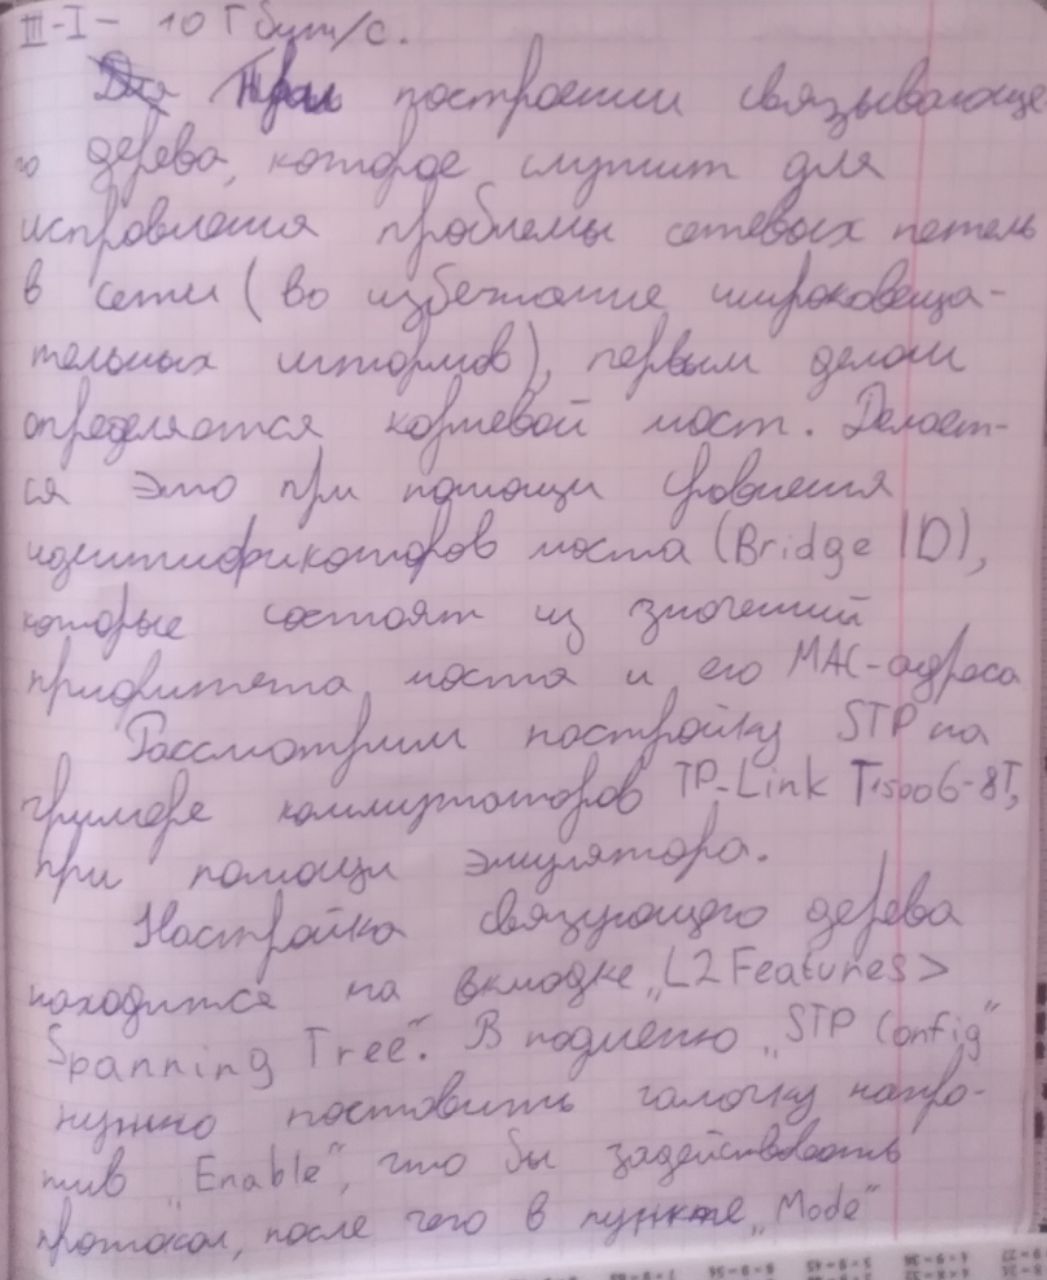 III-I- 10 Гбит/с.
При построении связывающе
го дерева, которое служит для
исправления проблемы сетевых петель
в сети (во избежание широковеща-
тельных штормов), первым делом
определяется корневой мост. Делает-
ся это при помощи уровнения
идентификаторов моста (Bridge ID),
которые состоят из значений
приоритета моста и его MAC-адреса
Рассмотрим постройку STP на
примере коммутаторов TP-Link T1500G-8T,
при помощи эмулятора.
Настройка связующего дерева
находится на вкладке „L2 Features >
Spanning Tree“. В подменю „STP Config“
нужно поставить галочку напро-
тив „Enable“, что бы задействовать
протокол, после чего в пункте „Mode“